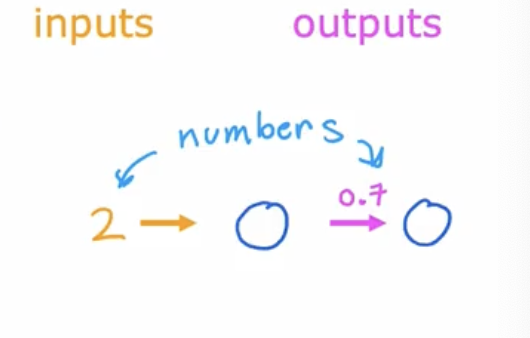 inputs outputs
numbers
0.7
2